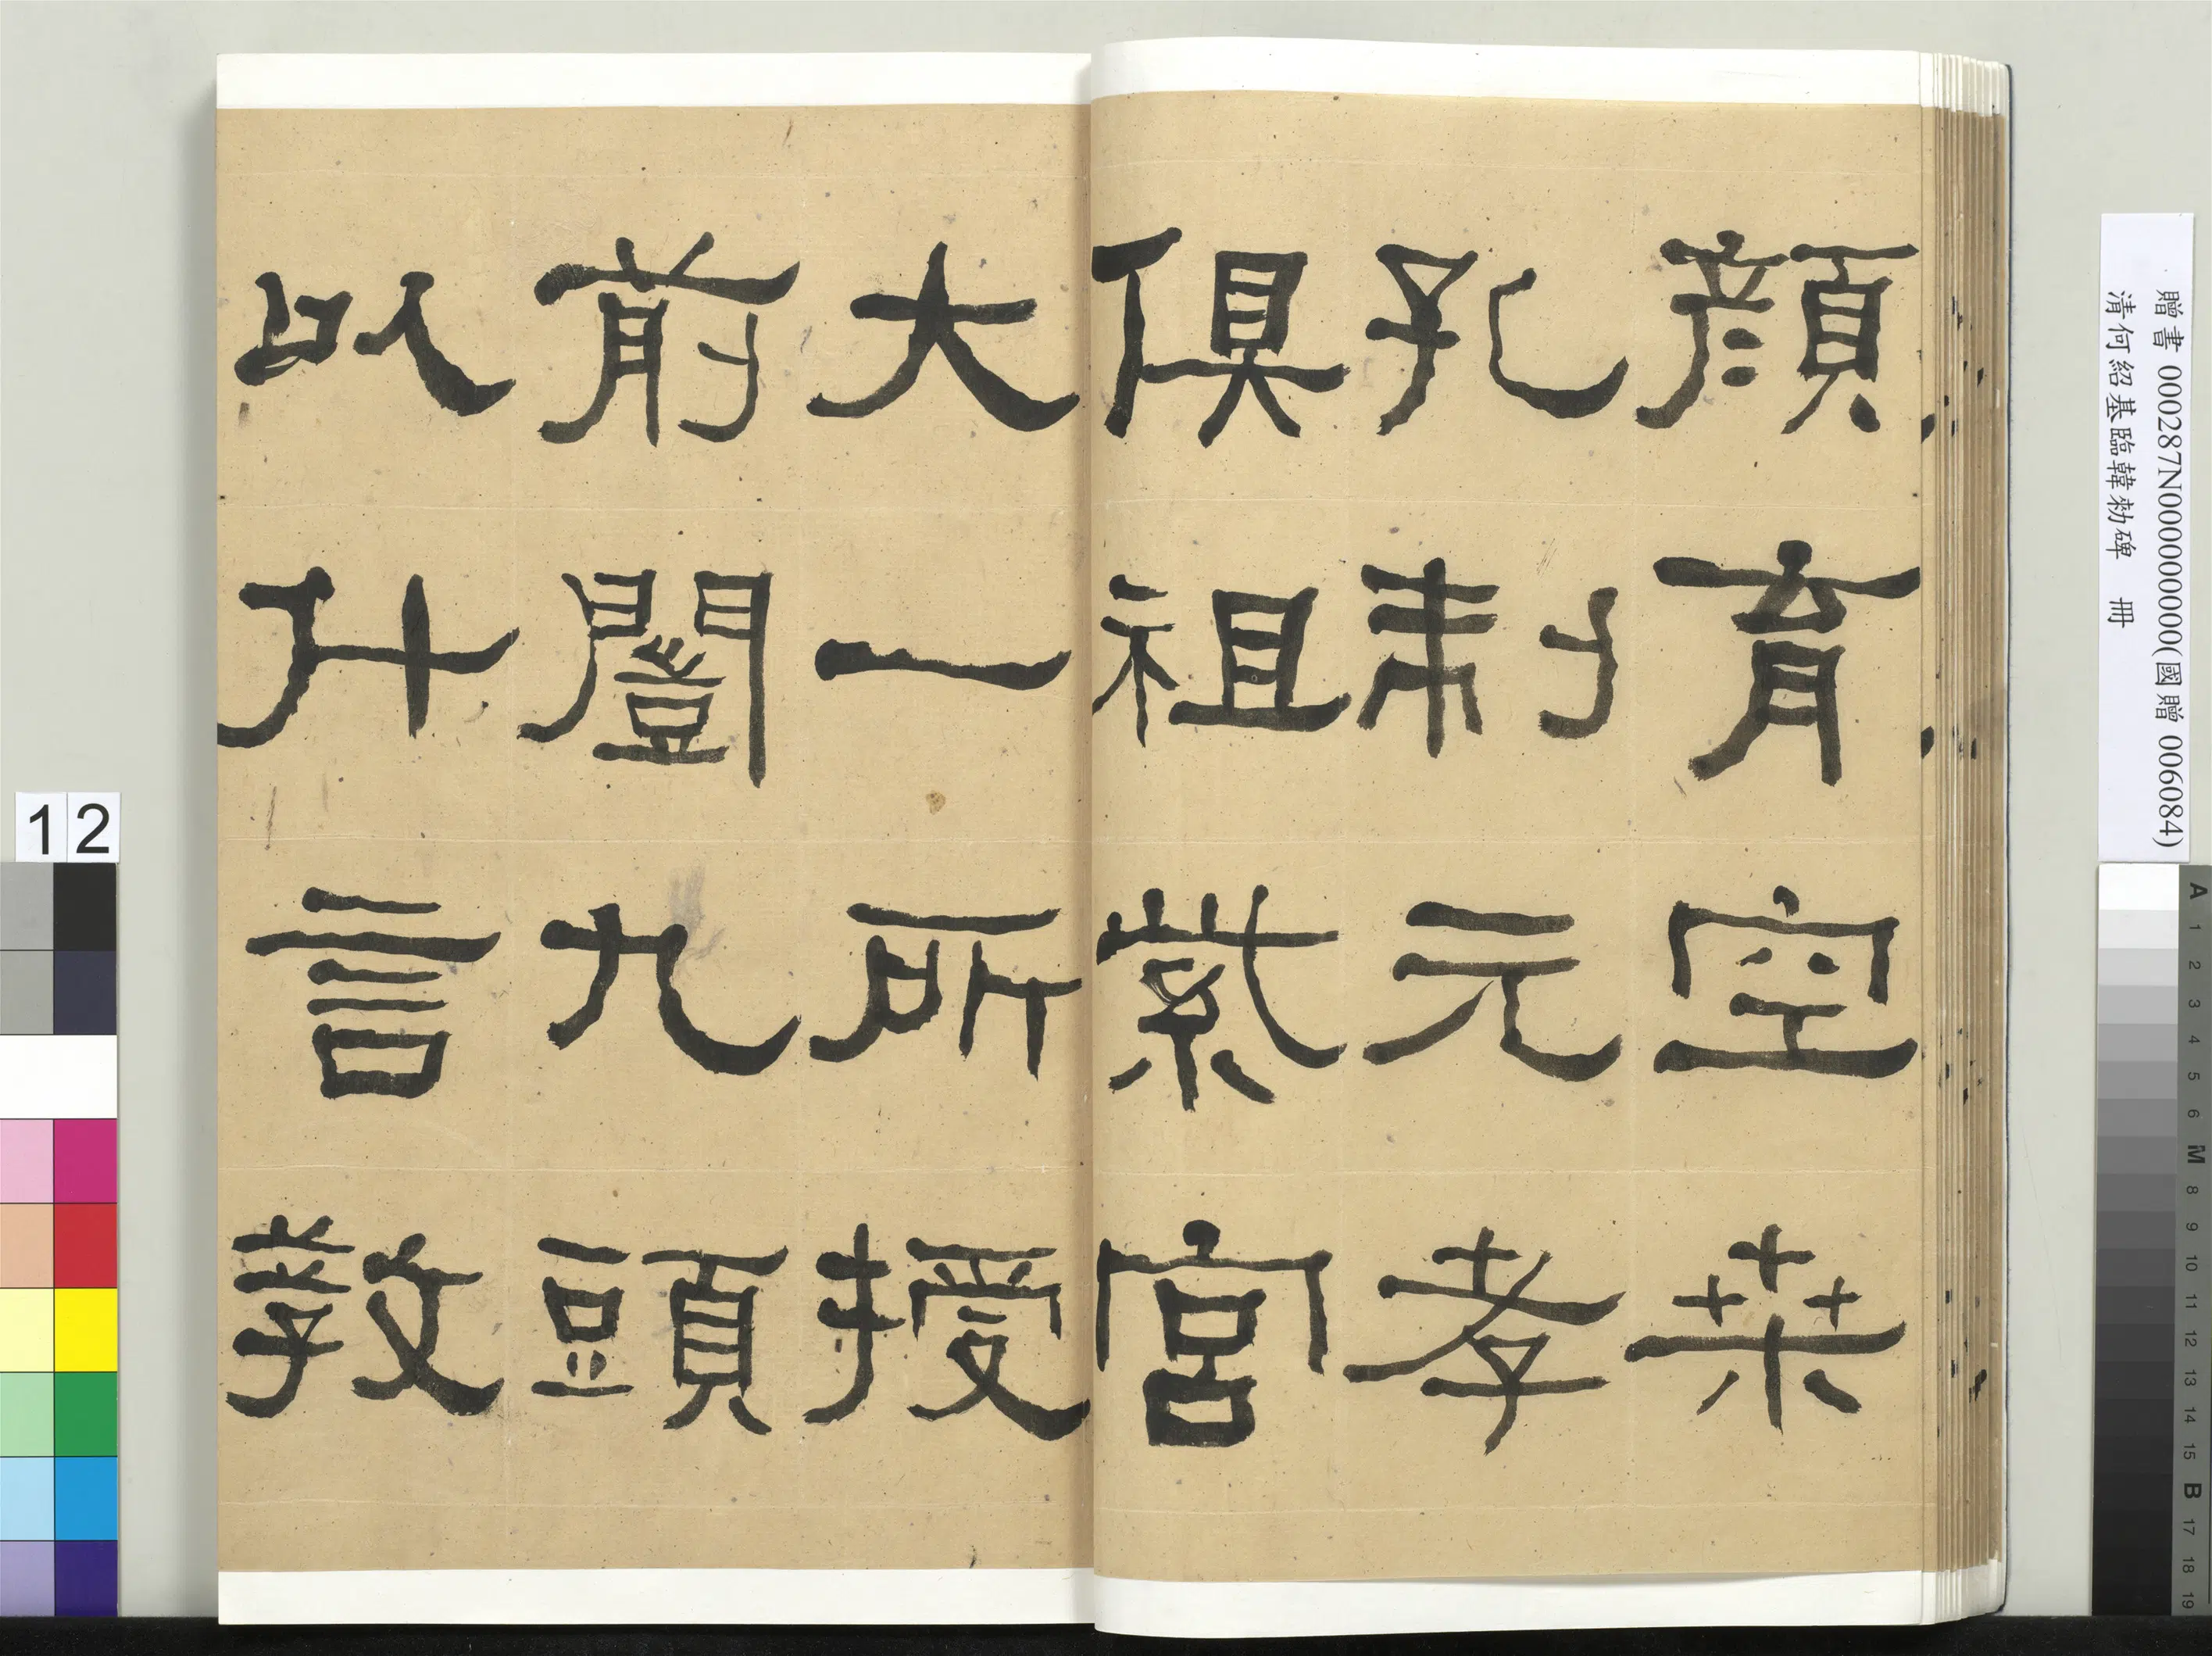 顏育空桒
孔制元孝
俱祖紫宮
大一所授
前闓九頭
以什言教
贈書 000287N000000000(國贈 006084)
清何紹基臨韓勑碑 冊
12
A 1 2 3 4 5 6 M 8 9 10 11 12 13 14 15 B 17 18 19